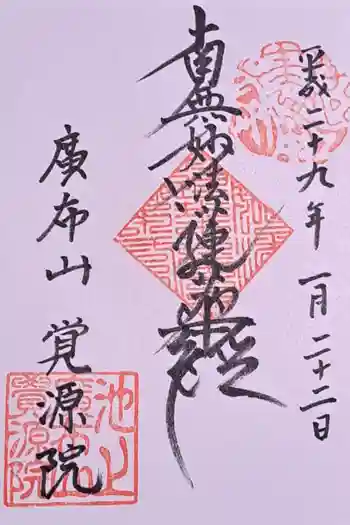 平成二十九年 一月 二十二日
南無妙法蓮華経
廣布山 覚源院
池上
廣布山
覚源院